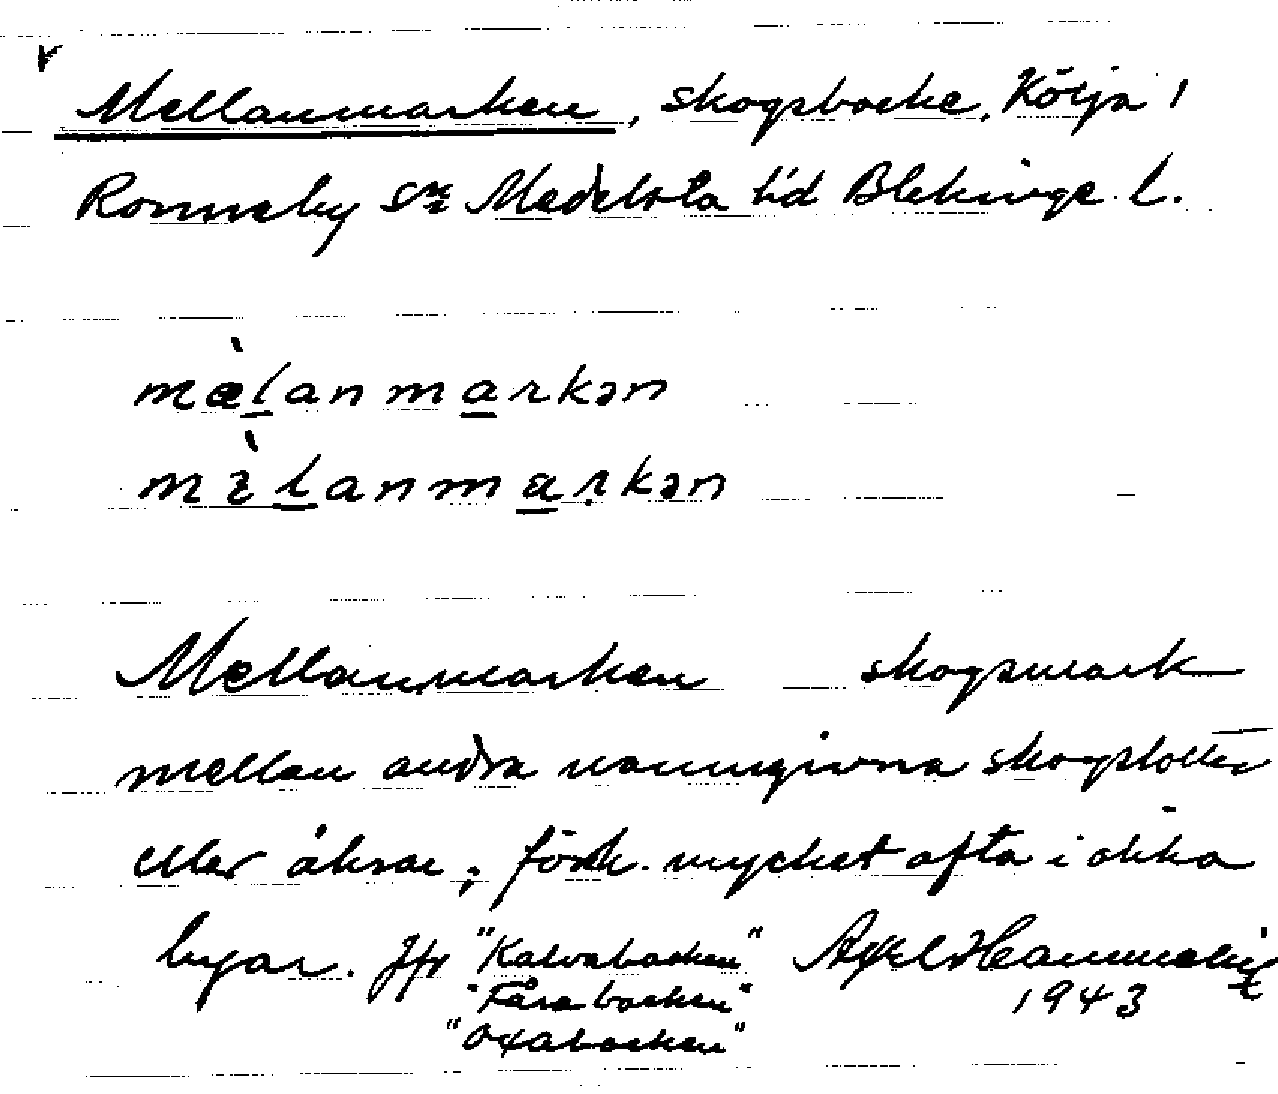 Mellanmarken, skogsbacke, Kölja 1
Ronneby sn Medelsta hd Blekinge l.
mælanmarkən
mɛlanmarkən
Mellanmarken skogsmark
mellan andra namngivna skogslotter
eller åkrar; förek. mycket ofta i olika
byar. Jfr "Kalvabacken" Axel Hammelin
"Fårabacken" 1943
"Oxabacken"